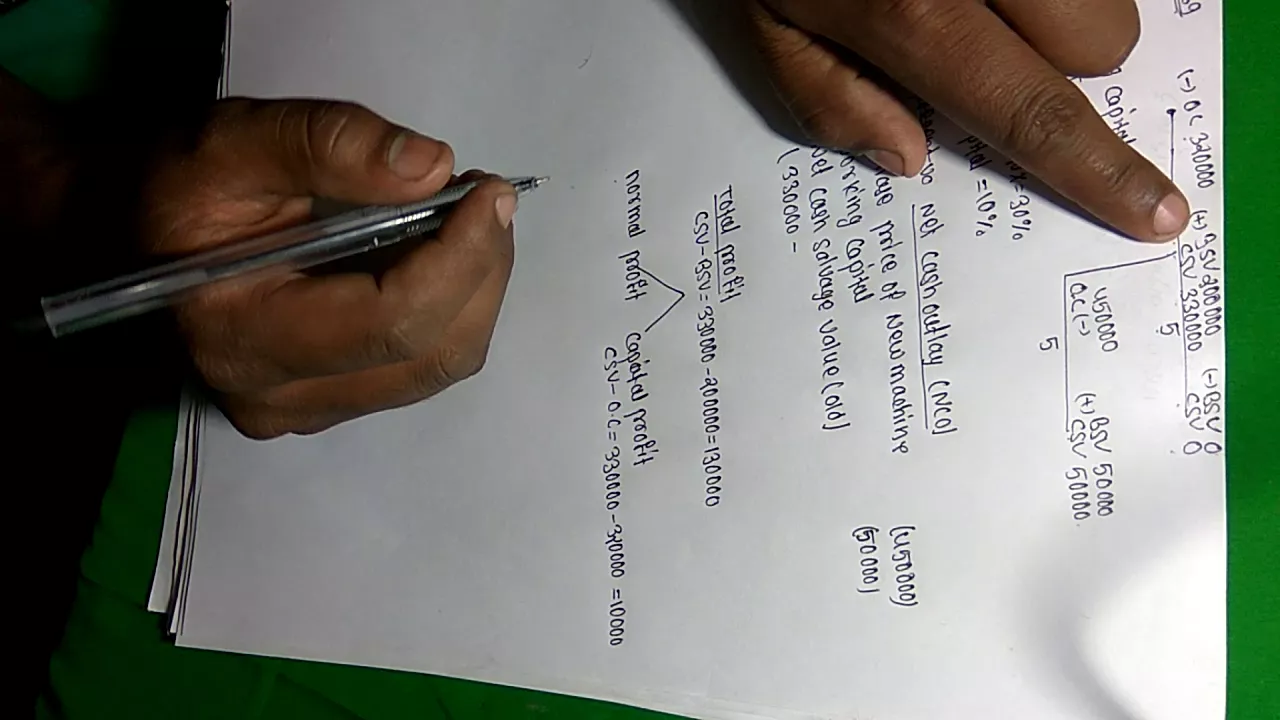 (-) OC 320000 (+) BSV 200000 (-) BSV 0
CSV 330000 CSV 0
5
450000 (+) BSV 50000
OC (-) CSV 50000
5
capital
=30%
=10%
Net cash outlay (NCO)
price of New machine (450000)
working capital (50000)
cash salvage value (old)
(330000 -
Total profit
CSV-BSV = 330000 - 200000 = 130000
normal profit capital profit
CSV - O.C = 330000 - 320000 = 10000